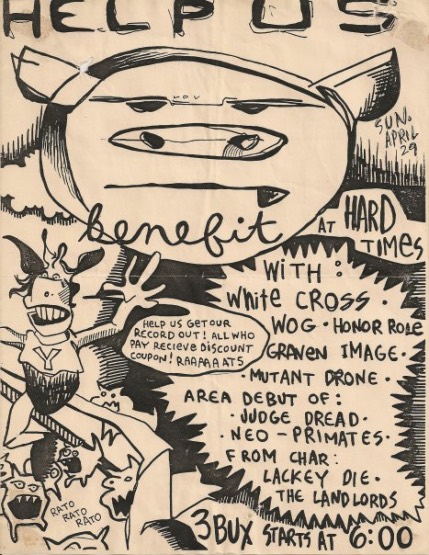 HELP US
SUN.
APRIL
29
benefit
AT HARD
TIMES
WITH:
WHITE CROSS.
WOG · HONOR ROLE
GRAVEN IMAGE ·
· MUTANT DRONE ·
AREA DEBUT OF:
· JUDGE DREAD ·
· NEO-PRIMATES ·
FROM CHAR:
LACKEY DIE ·
· THE LANDLORDS
HELP US GET OUR
RECORD OUT! ALL WHO
PAY RECIEVE DISCOUNT
COUPON! RAAAAAATS
Y
RATO
RATO
RATO
3 BUX STARTS AT 6:00